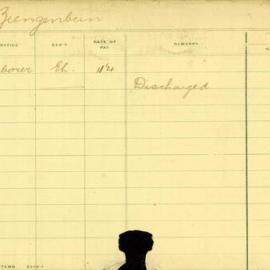 Ziengenbein
OFFICE DEP'T RATE OF PAY REMARKS
borer Eh.
Discharged